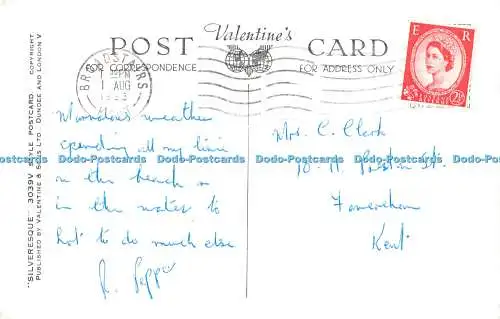 POST Valentine's CARD
FOR CORRESPONDENCE FOR ADDRESS ONLY
BROADSTAIRS
1 AUG
E R
Marvelous weather
spending all my time
on the beach or
in the water to
hot to do much else
R.
Mrs. C. Clark
10-11
Faversham
Kent
Dodo-Postcards Dodo-Postcards Dodo-Postcards Dodo-Postcards Dodo-Postcards Dodo-Postcards
"SILVERESQUE" 3039V SEPIA STYLE POSTCARD. COPYRIGHT.
PUBLISHED BY VALENTINE & SONS LTD DUNDEE AND LONDON V